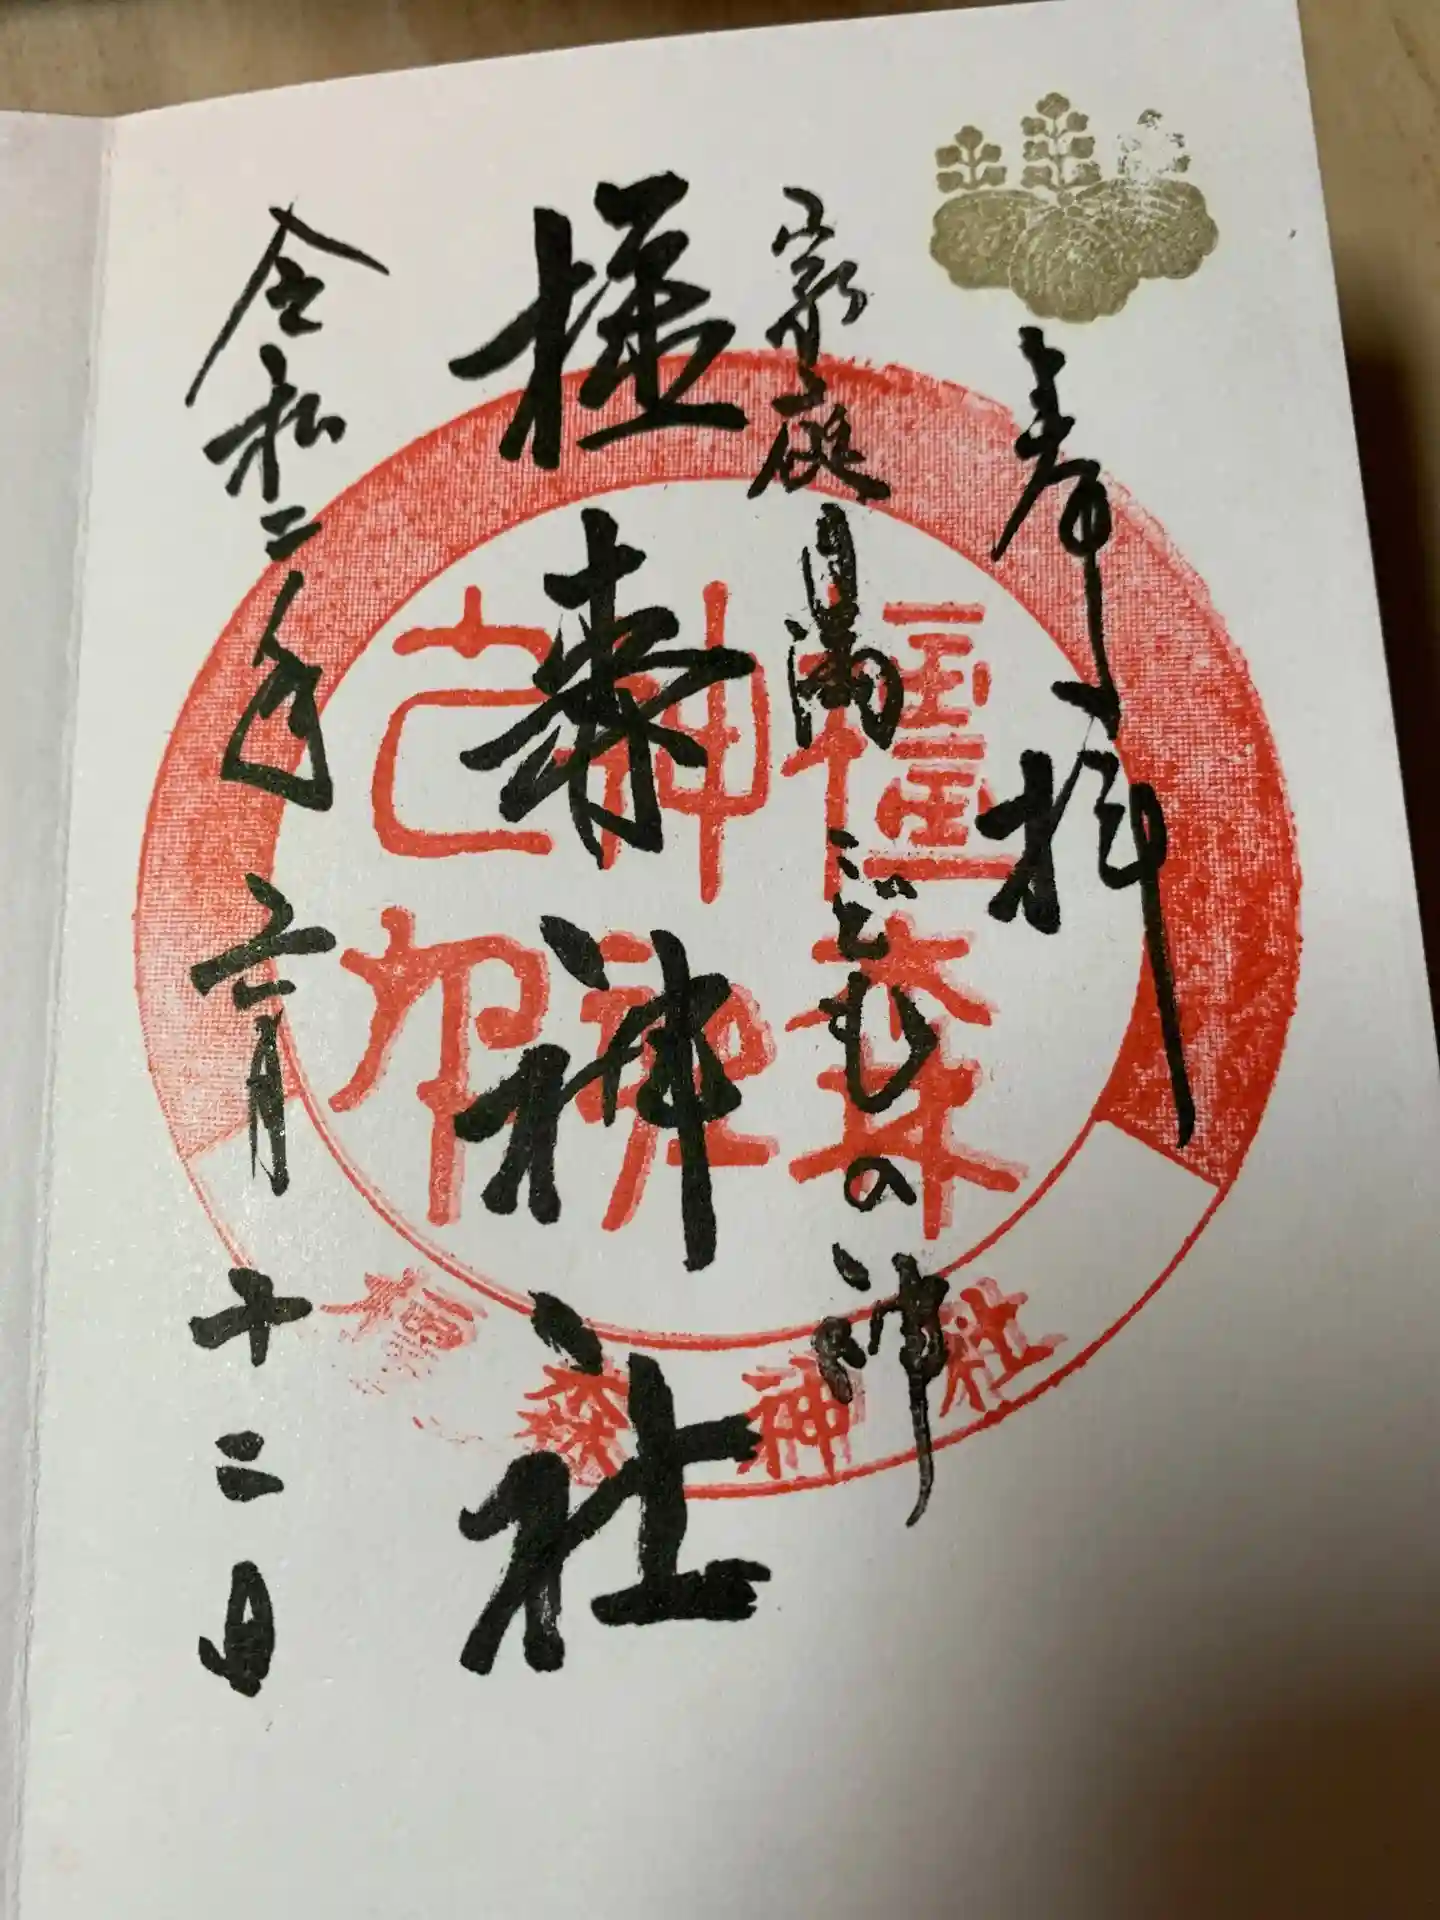 奉拝
家庭円満こどもの神
橿森神社
令和二年六月十二日
橿森
神社
之印
橿森神社